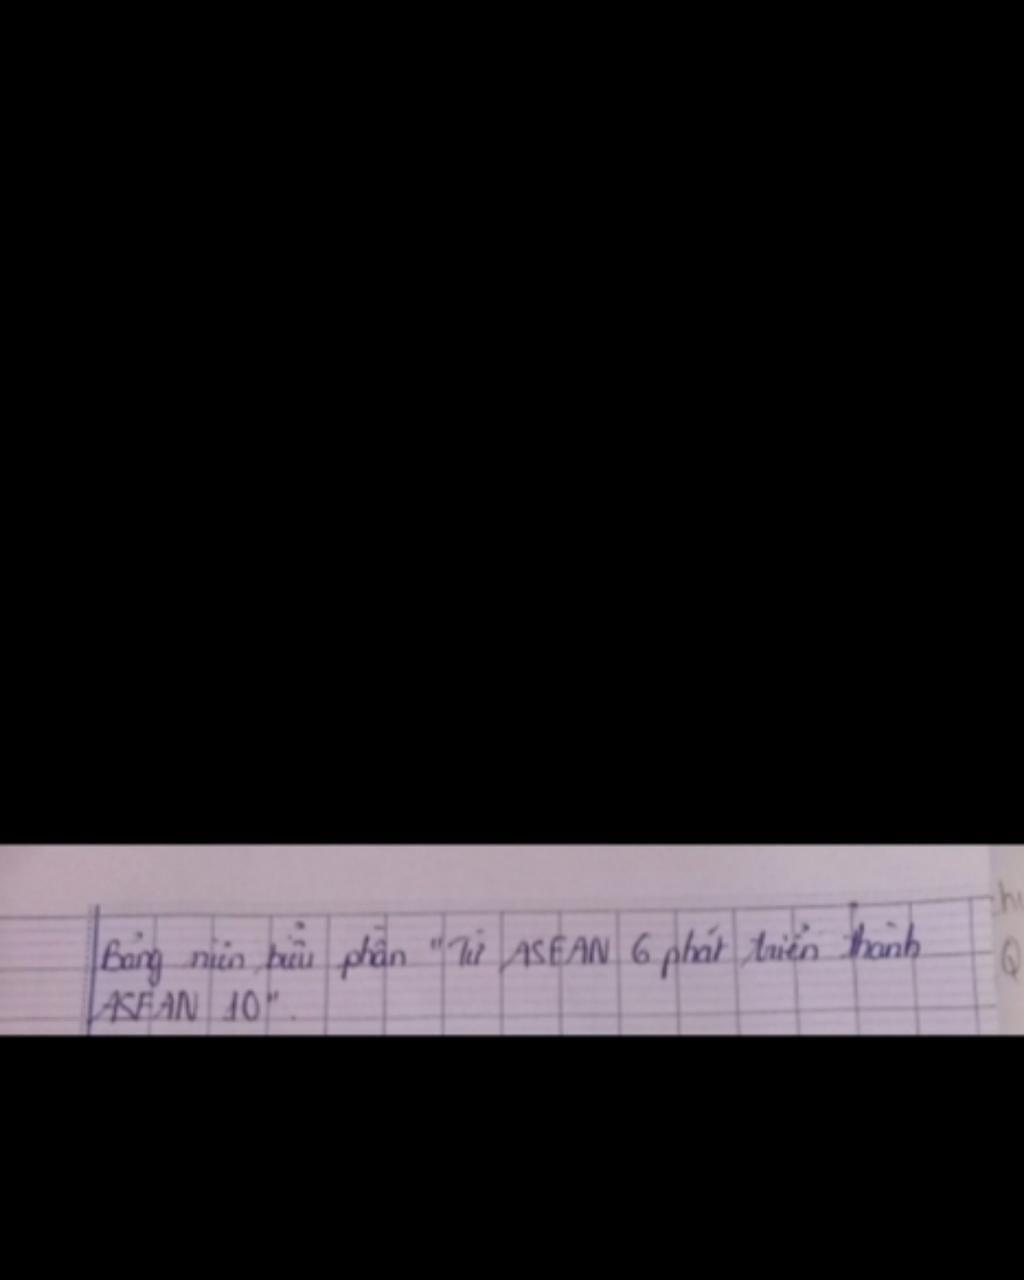 Bảng niên biểu phần "Từ ASEAN 6 phát triển thành
ASEAN 10".